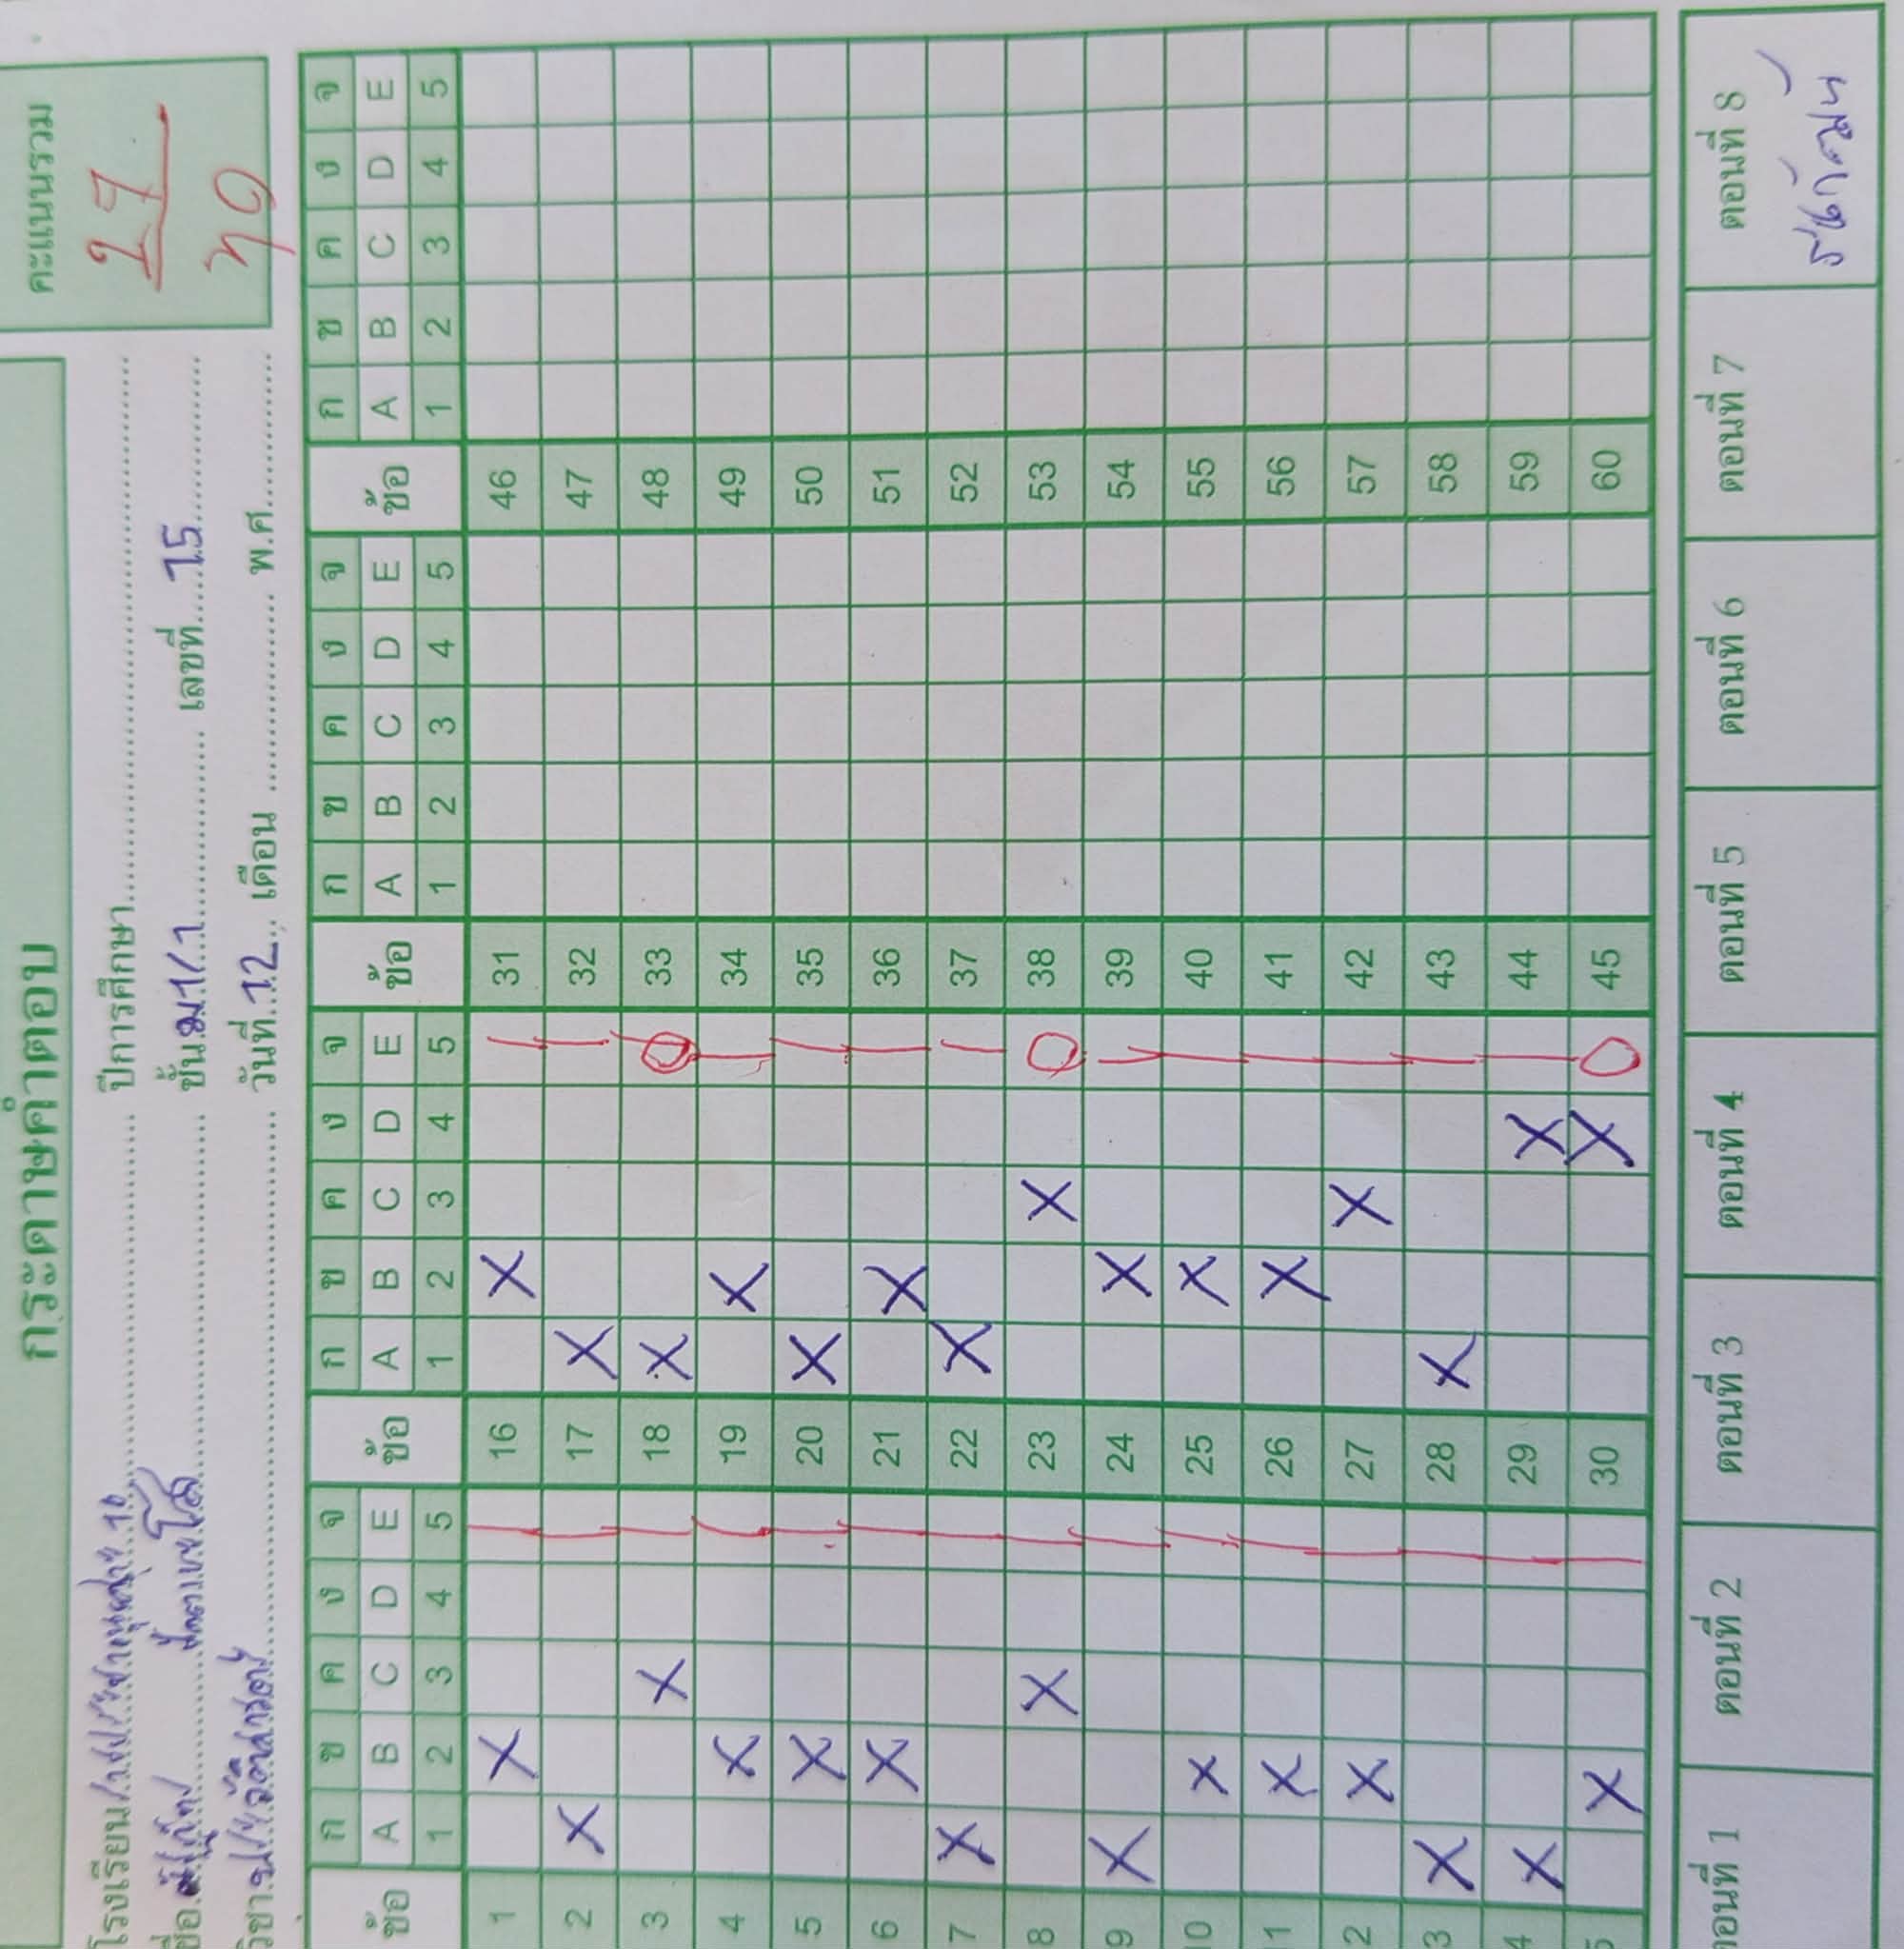 กระดาษคำตอบ
คะแนนรวม
27
โรงเรียน ปีการศึกษา
ชื่อ ชั้น ม1/1 เลขที่ 15
วิชา วันที่ 12 เดือน พ.ศ.
ข้อ ก ข ค ง จ ข้อ ก ข ค ง จ ข้อ ก ข ค ง จ ข้อ ก ข ค ง จ
A B C D E A B C D E A B C D E A B C D E
1 2 3 4 5 1 2 3 4 5 1 2 3 4 5 1 2 3 4 5
1 X 16 X 31 46
2 X 17 X 32 47
3 X 18 X 33 48
4 X 19 X 34 49
5 X 20 X 35 50
6 X 21 X 36 51
7 X 22 X 37 52
8 X 23 X 38 53
9 X 24 X 39 54
10 X 25 X 40 55
11 X 26 X 41 56
12 X 27 X 42 57
13 X 28 X 43 58
14 X 29 X 44 59
15 X 30 X 45 60
ตอนที่ 1 ตอนที่ 2 ตอนที่ 3 ตอนที่ 4 ตอนที่ 5 ตอนที่ 6 ตอนที่ 7 ตอนที่ 8